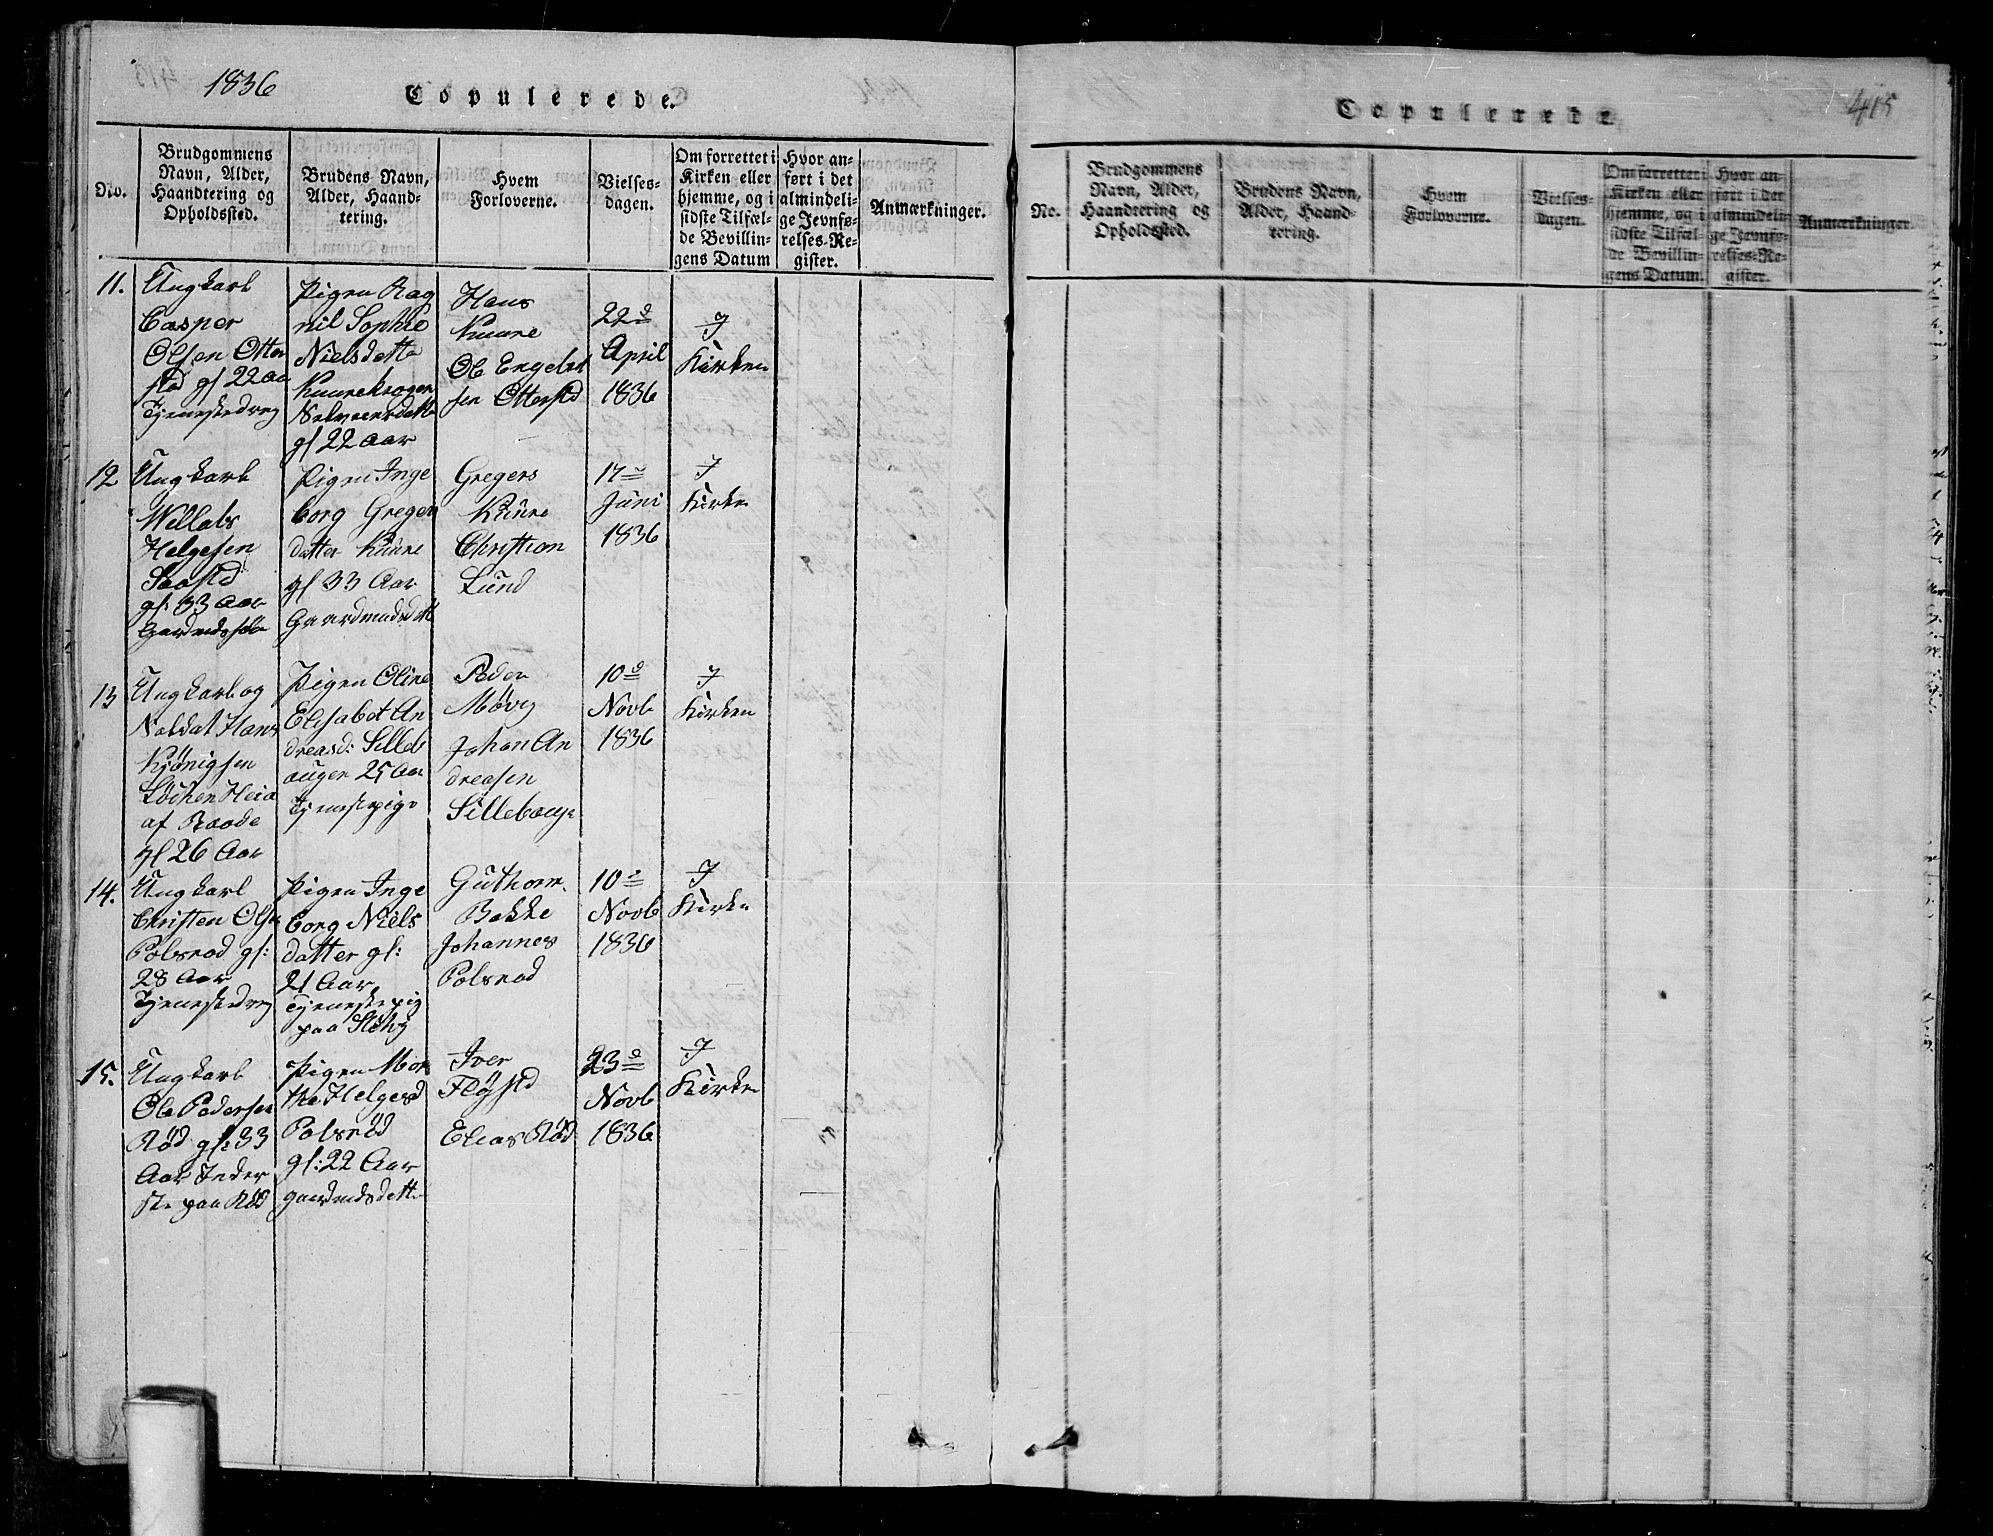 1836
Copulerede.
No.
Brudgommens
Navn, Alder,
Haandtering og
Opholdssted.
Brudens Navn,
Alder, Haand-
tering.
Hvem
Forloverne.
Vielses-
dagen.
Om forrettet i
Kirken eller
hjemme, og i
sidste Tilfæl-
de Bevillin-
gens Datum
Hvor an-
ført i det
almindeli-
ge Jevnfø-
relses-Re-
gister.
Anmærkninger.
11.
Ungkarl
Casper
Olsen Otter
stad gl 22 aa
Tjenestedreng
Pigen Rag
nil Sophie
Nielsdatte
gl 22 Aar
Hans
Kuure
Ole Engebret
sen Ottersta
22d
April
1836
I
Kirken
12
Ungkarl
Helgesen
gl: 33 Aar
Pigen Inge
borg Greger
datter Kuure
gl 33 Aar
Gaardmandsdatt
Gregers
Kuure
Christian
Lund
17
Juni
1836
I
Kirken
13
Ungkarl og
Soldat Hans
Kjönigsen
Löchen Heia
af Raade
gl 26 Aar
Pigen Oline
Elisabet An
dreasd: Silleb
augen 25 Aar
Tjenestepige
Peder
Møvig
Johan An
dreasen
Sillebauge
10d
Novb
1836
I
Kirken
14.
Ungkarl
Christen Olsen
Polsrod gl:
28 Aar
Tjenestedreng
Pigen Inge
borg Niels
datter gl:
21 Aar
Tjenestepig
paa
Guthorm
Bakke
Johannes
Polsrod
10
Novb
1836
I
Kirken
15.
Ungkarl
Ole Pedersen
Rød gl: 33
Aar Inder
ste paa Rød
Pigen Mar
the Helgesd
Polsrød
gl: 22 Aar
gaardmdsdatt
Iver
Fløjstd
Elias Rød
23d
Novb
1836
I
Kirken
415
Copulerede.
No.
Brudgommens
Navn, Alder,
Haandtering og
Opholdssted.
Brudens Navn,
Alder, Haand-
tering.
Hvem
Forloverne.
Vielses-
dagen.
Om forrettet i
Kirken eller
hjemme, og i
sidste Tilfæl-
de Bevillin-
gens Datum.
Hvor an-
ført i det
almindeli-
ge Jevnfø-
relses-Re-
gister.
Anmærkninger.